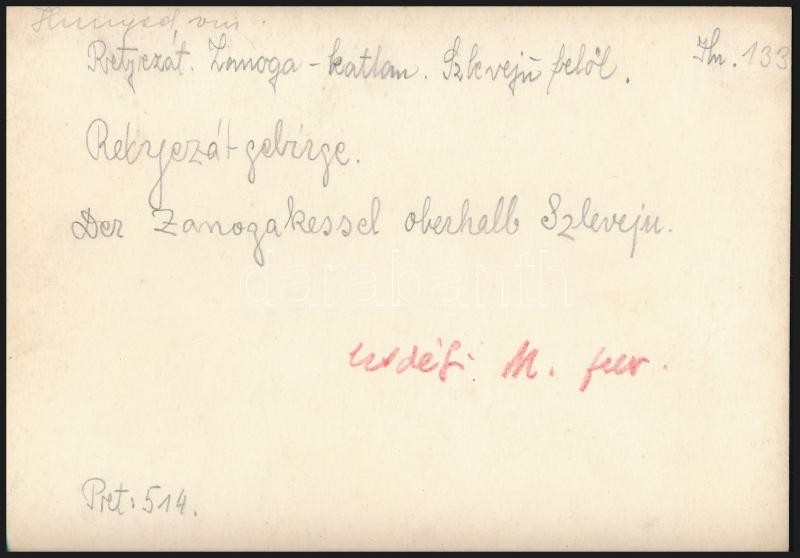 Hunyad vm.
Retyezát. Zanoga-katlan. Szleveju felöl. Thn. 133
Retyezát gebirge.
Der Zanogakessel oberhalb Szleveju.
darabanth
Erdélyi M. felv.
Pret: 514.